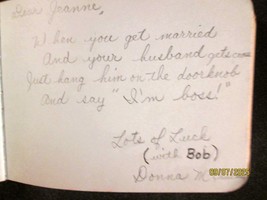 Dear Jeanne,
When you get married
And your husband gets cross
Just hang him on the doorknob
And say "I'm boss!"
Lots of Luck
(with Bob)
Donna M.